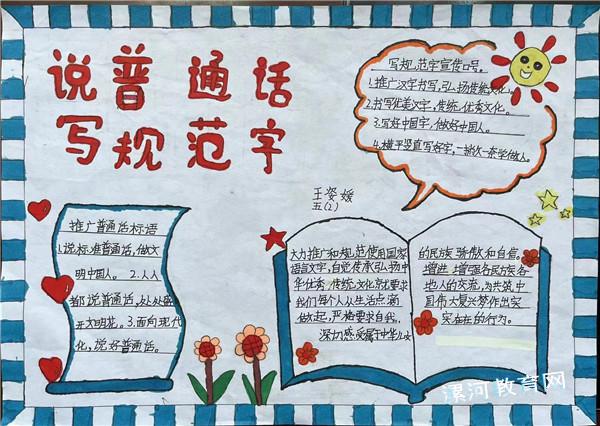 说普通话
写规范字
写规范字宣传口号。
1.推广汉字书写,引扬传统文化。
2.书写优美文字,传统优秀文化。
3.写好中国字,做好中国人。
4.横平竖直写好字,一撇一捺学做人。
王姿媛
五(2)
推广普通话标语
1.说标准普通话,做文
明中国人。 2.人人
都说普通话,处处盛
开文明花。3.面向现代
化,说好普通话。
大力推广和规范使用国家
语言文字,自觉传承引扬中
华优秀传统文化就要求
我们每个人从生活点滴
做起,严格要求自我。
深刻感受属于中华儿女
的民族骄傲和自信。
增进增强各民族各
地人的交流,为共筑中
国伟大复兴梦作出实
实在在的行为。
漯河教育网